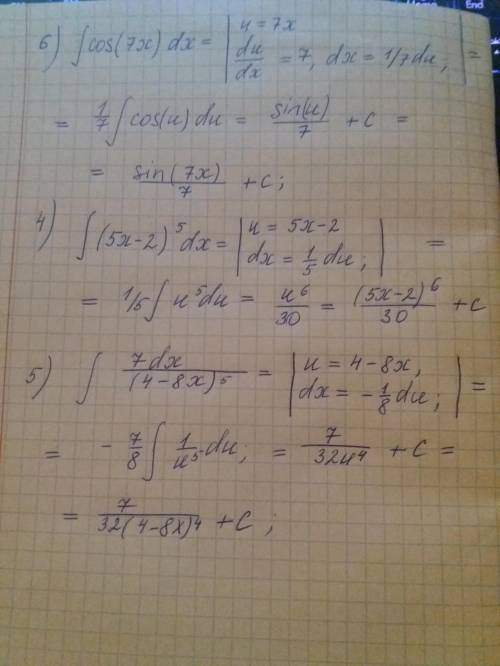 6) ∫cos(7x) dx = | u = 7x
du/dx = 7, dx = 1/7 du, | =
= 1/7 ∫cos(u) du = sin(u)/7 + c =
= sin(7x)/7 + c;
4) ∫(5x-2)^5 dx = | u = 5x-2
dx = 1/5 du; | =
= 1/5 ∫u^5 du = u^6/30 = (5x-2)^6/30 + c
5) ∫ 7dx/(4-8x)^5 = | u = 4-8x,
dx = -1/8 du; | =
= -7/8 ∫ 1/u^5 du; = 7/32u^4 + C =
= 7/32(4-8x)^4 + C;
End